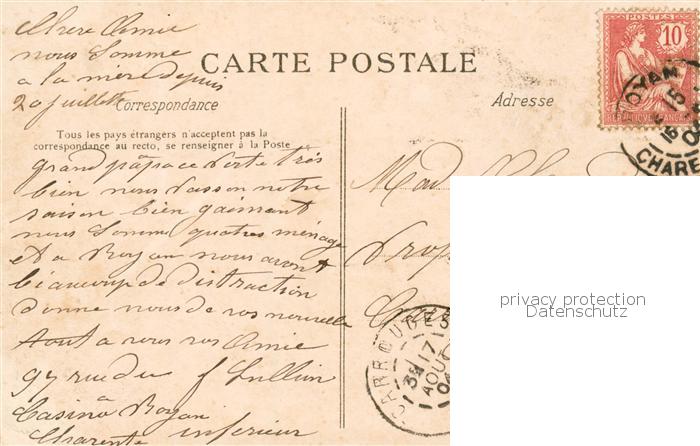 Chere Amie
nous somme
a la mere depuis
20 juillette
CARTE POSTALE
Correspondance
Adresse
Tous les pays étrangers n'acceptent pas la
correspondance au recto, se renseigner à la Poste
grand papa ce porte très
bien nous passon notre
saison bien gaimant
nous somme quatres ménage
et a Royan nous avont
beaucoup de distraction
donne nous de vos nouvelle
tout a vous vos Amie
97 rue du
Casino Royan
Charente inferieur
POSTES
10
REPUBLIQUE FRANÇAISE
ROYAN
15
CHARE
Mad
Prop
CARROUGES
17
AOUT
privacy protection
Datenschutz